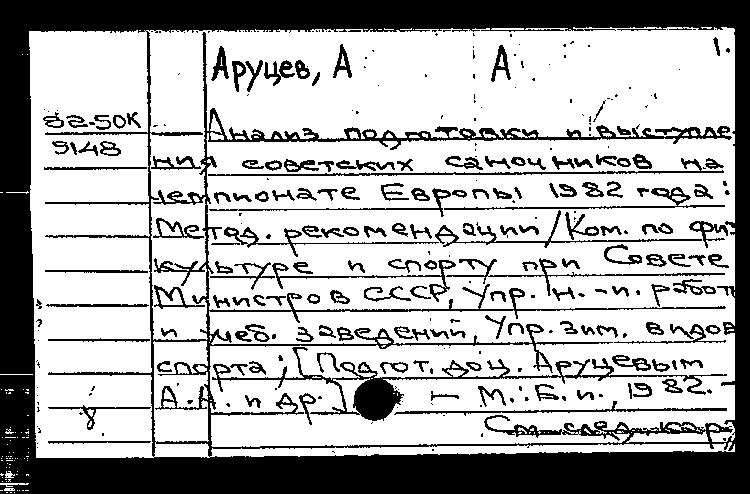 1.
Аруцев, А А
82-50К
9148
Анализ подготовки и выступле-
ния советских саночников на
чемпионате Европы 1982 года:
Метод. рекомендации/Ком. по физ
культуре и спорту при Совете
Министров СССР, Упр. н.-и. работ
и учеб. заведений, Упр. зим. видов
спорта; [Подгот. доц. Аруцевым
А.А. и др.] — М.: Б.и., 1982. -
См. след. кар
8